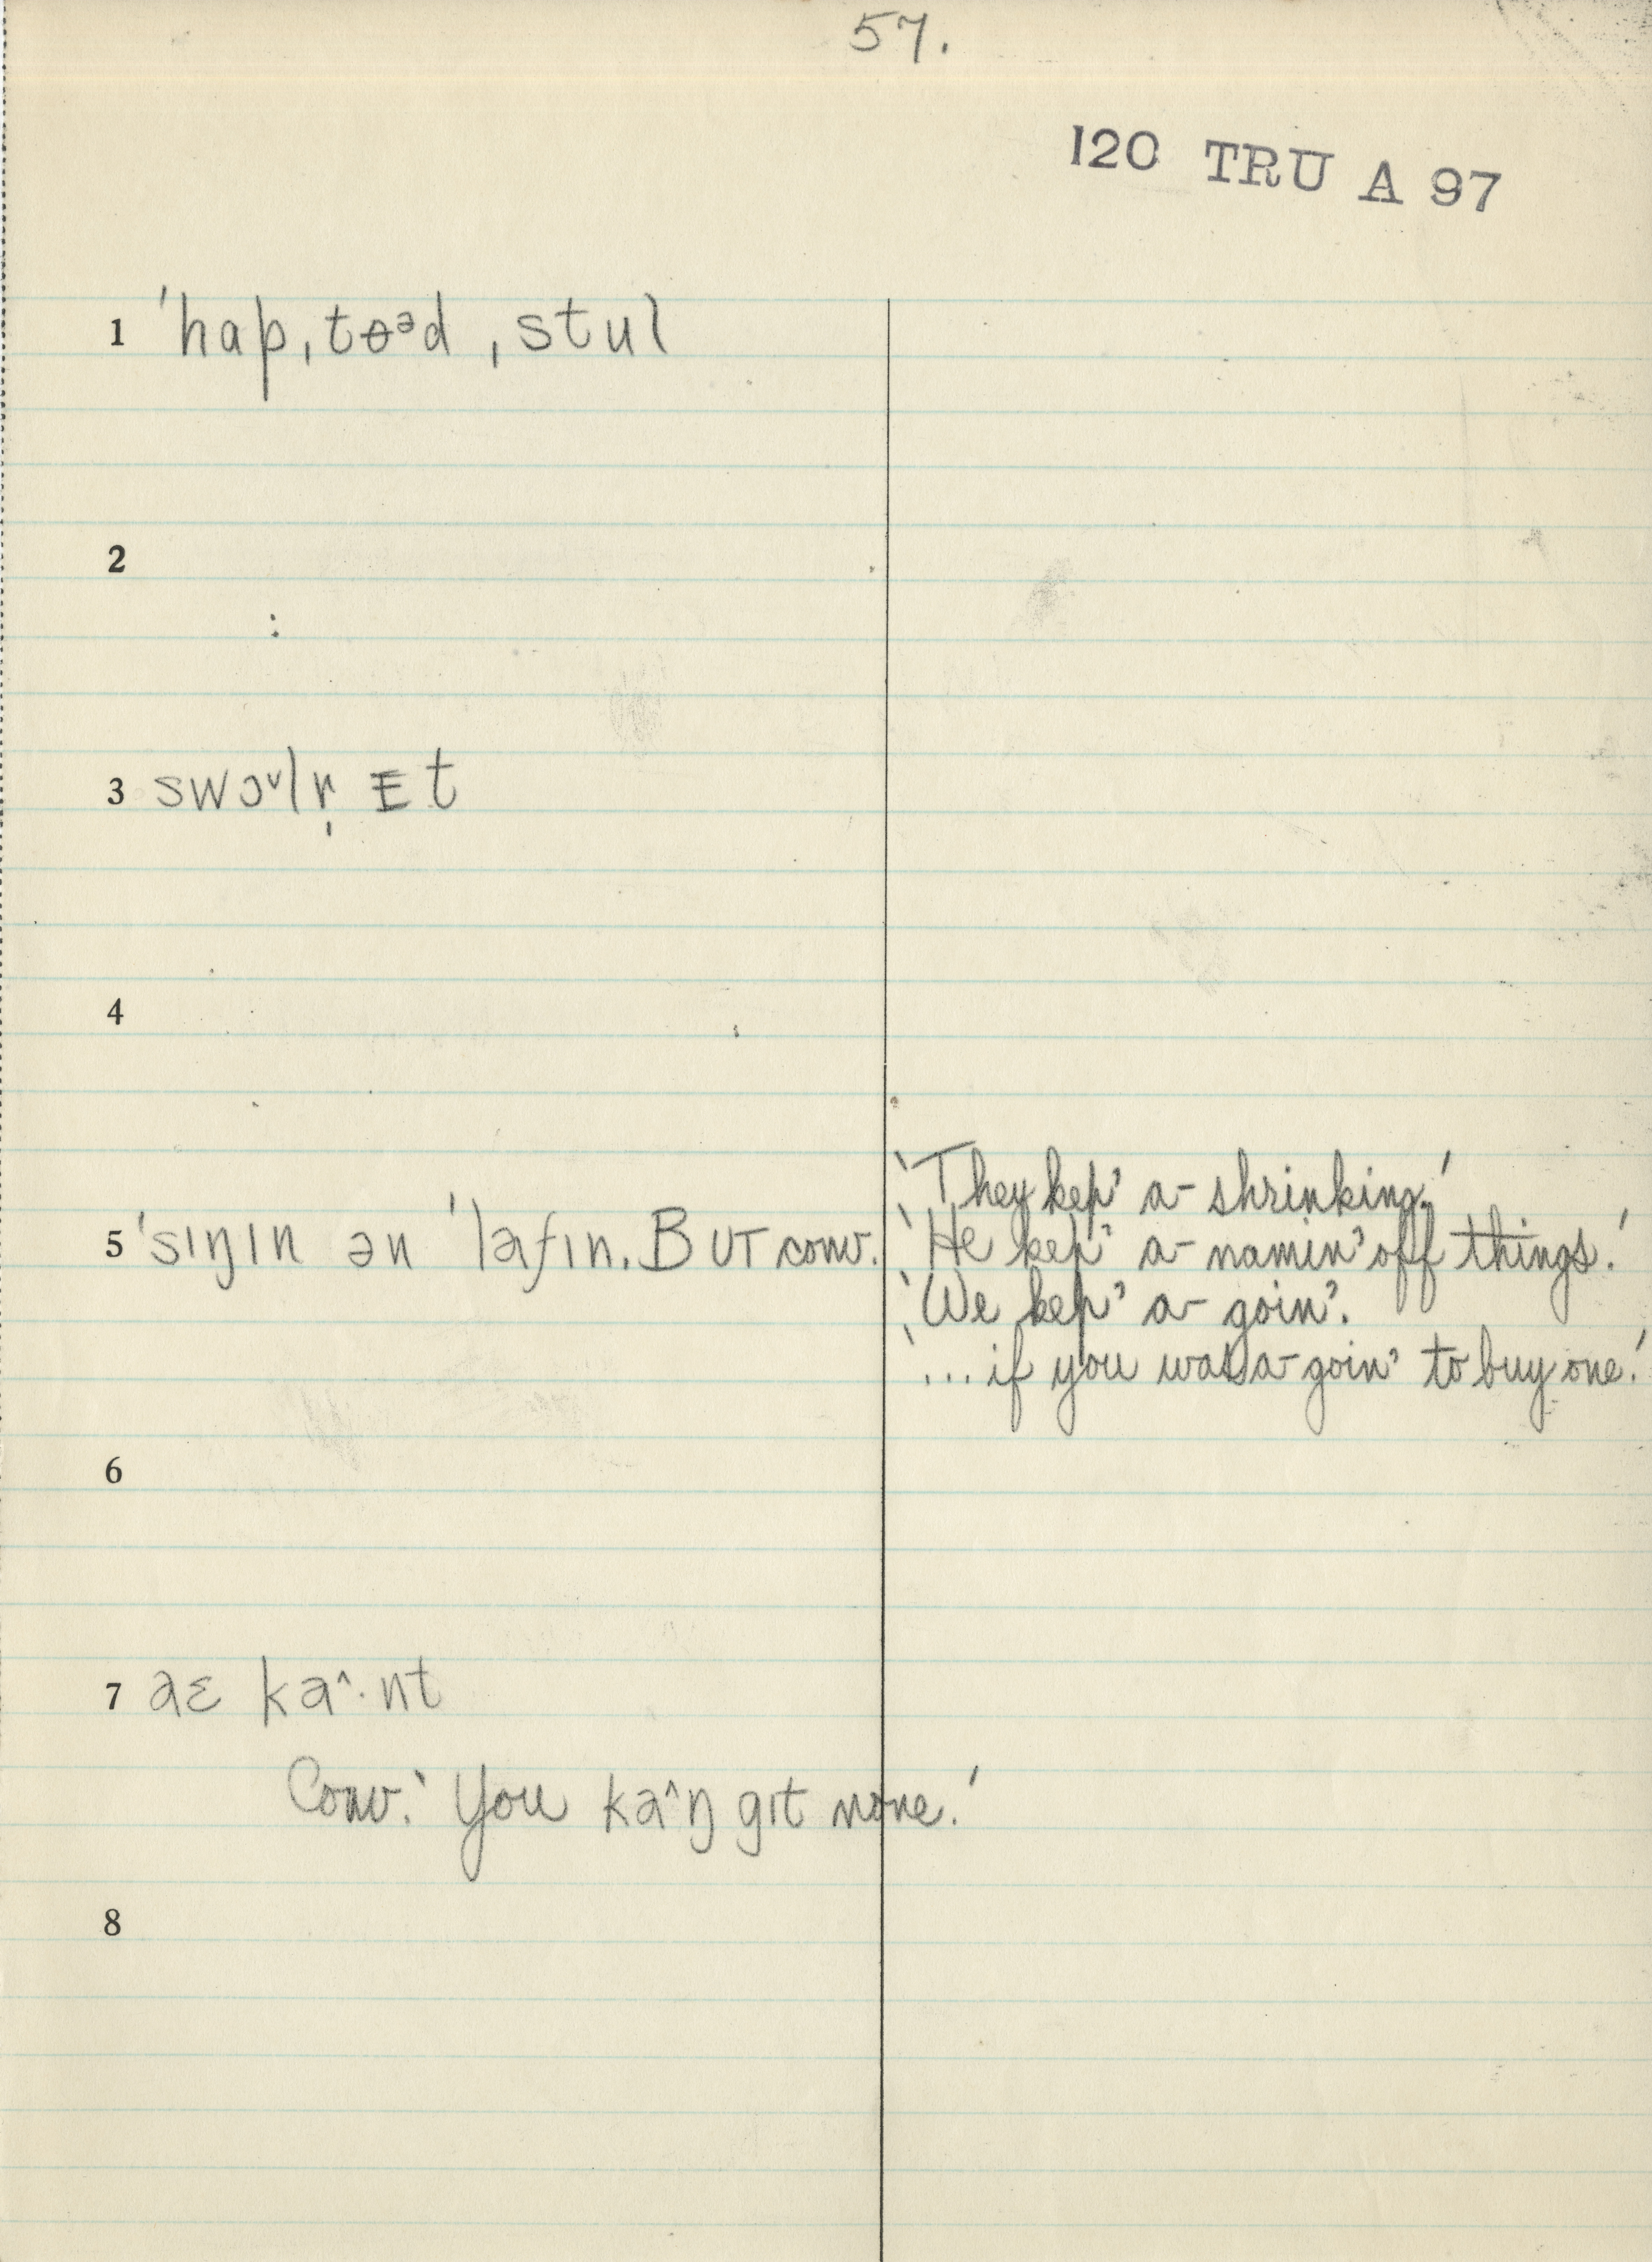 57.
120 TRU A 97
1 ˈhapˌtɵᵊdˌstul
2
3 swɔ˅lr̩ ɪt
4
5 ˈsɪŋɪn ən ˈlafɪn. BUT conv.
'They kep' a-shrinking.'
'He kep' a-namin' off things.'
'We kep' a-goin'.
'... if you was a-goin' to buy one.'
6
7 aɛ ka^·nt
Conv. 'You ka^ŋ gɪt none.'
8